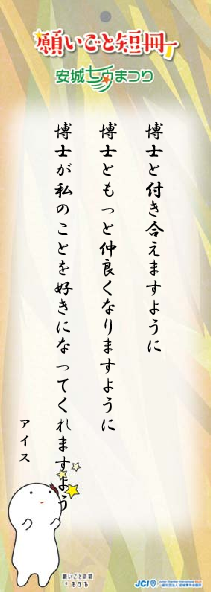 願いごと短冊
安城七夕まつり
博士と付き合えますように
博士ともっと仲良くなりますように
博士が私のことを好きになってくれますよう
アイス
願いごと短冊
JCI